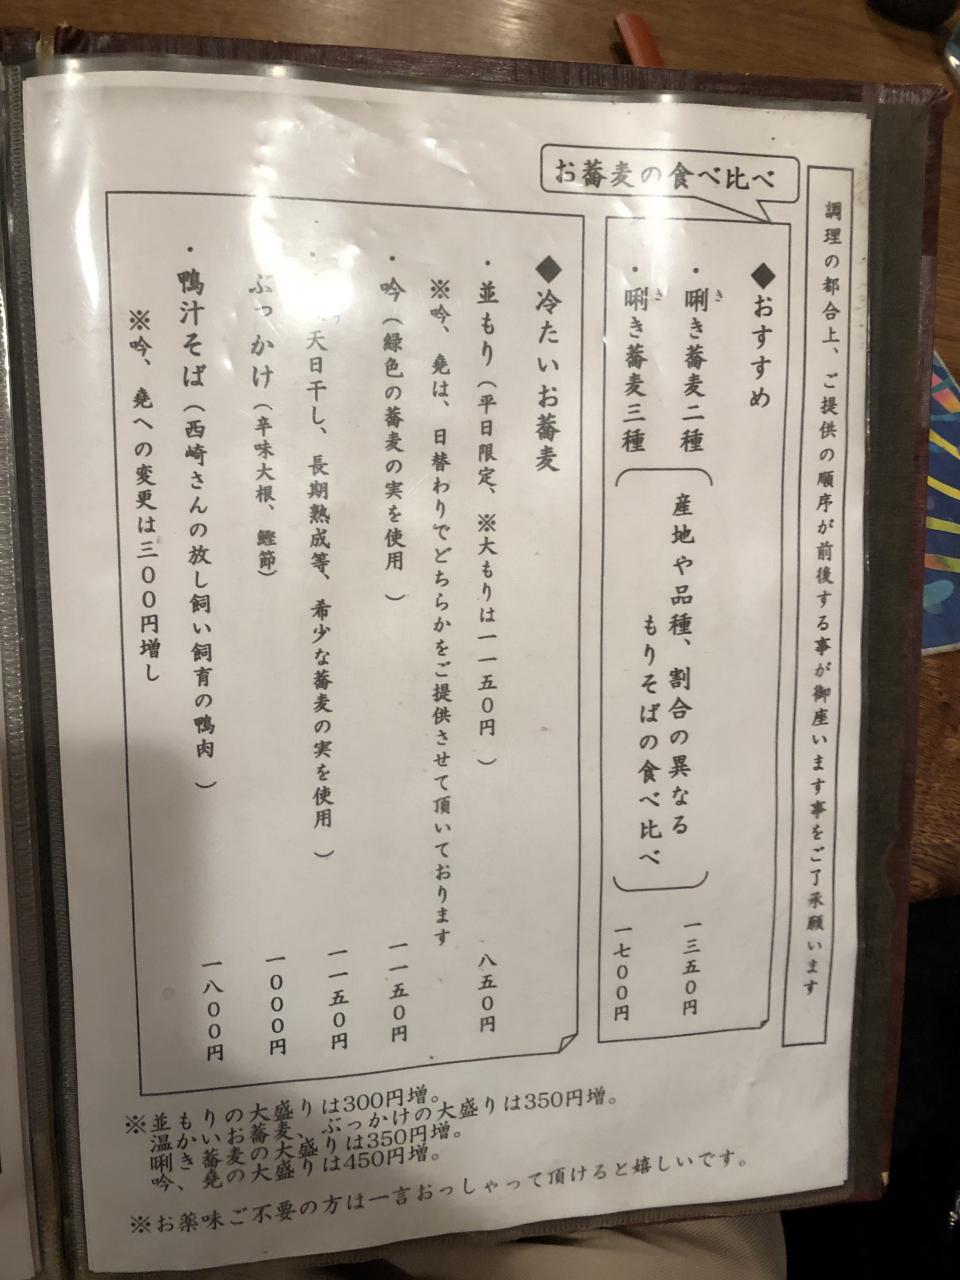 調理の都合上、ご提供の順序が前後する事が御座います事をご了承願います
お蕎麦の食べ比べ
◆おすすめ
・唎き蕎麦二種 一三五〇円
き
・唎き蕎麦三種 一七〇〇円
き
産地や品種、割合の異なる
もりそばの食べ比べ
◆冷たいお蕎麦
・並もり（平日限定、※大もりは一一五〇円） 八五〇円
※吟、堯は、日替わりでどちらかをご提供させて頂いております
・吟（緑色の蕎麦の実を使用） 一一五〇円
・天日干し、長期熟成等、希少な蕎麦の実を使用） 一一五〇円
ぶっかけ（辛味大根、鰹節） 一〇〇〇円
・鴨汁そば（西崎さんの放し飼い飼育の鴨肉） 一八〇〇円
※吟、堯への変更は三〇〇円増し
※並もりの大盛りは300円増。
温かいお蕎麦、ぶっかけの大盛りは350円増。
唎き蕎麦の大盛りは350円増。
吟、堯の大盛りは450円増。
※お薬味ご不要の方は一言おっしゃって頂けると嬉しいです。